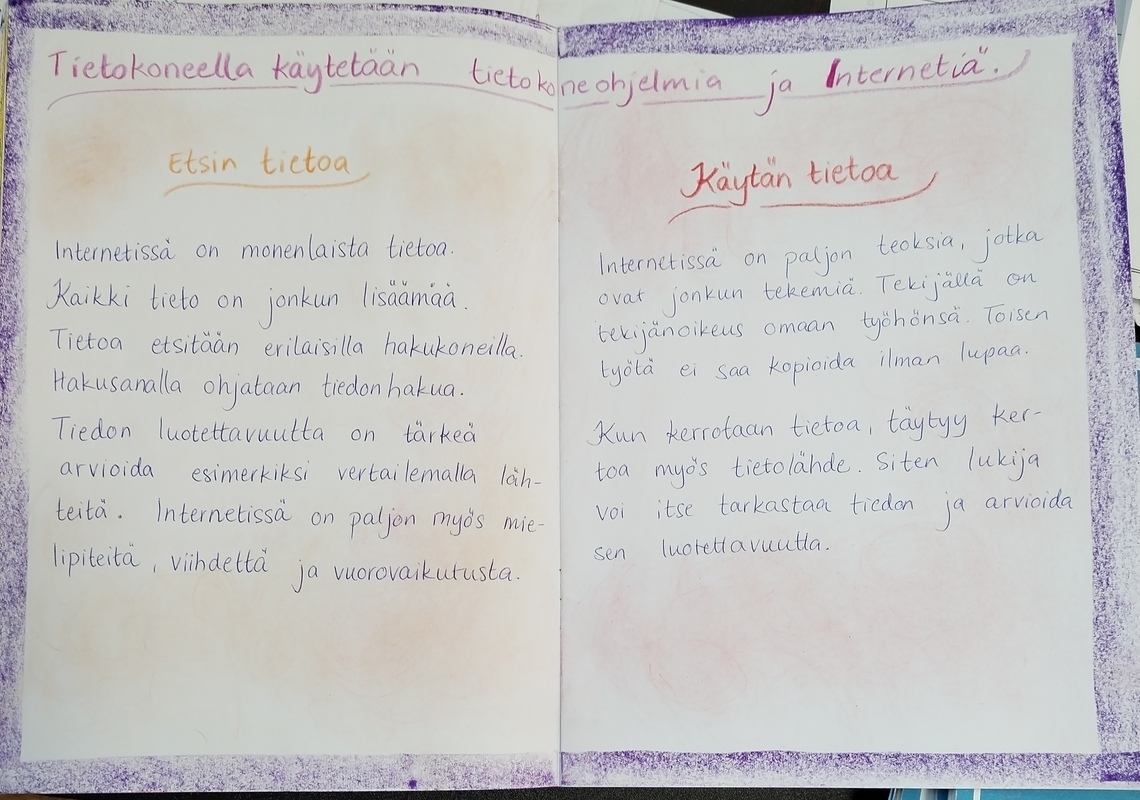 Tietokoneella käytetään tietokoneohjelmia ja Internetiä.
Etsin tietoa
Internetissä on monenlaista tietoa.
Kaikki tieto on jonkun lisäämää.
Tietoa etsitään erilaisilla hakukoneilla.
Hakusanalla ohjataan tiedonhakua.
Tiedon luotettavuutta on tärkeä
arvioida esimerkiksi vertailemalla läh-
teitä. Internetissä on paljon myös mie-
lipiteitä, viihdettä ja vuorovaikutusta.
Käytän tietoa
Internetissä on paljon teoksia, jotka
ovat jonkun tekemiä. Tekijällä on
tekijänoikeus omaan työhönsä. Toisen
työtä ei saa kopioida ilman lupaa.
Kun kerrotaan tietoa, täytyy ker-
toa myös tietolähde. Siten lukija
voi itse tarkastaa tiedon ja arvioida
sen luotettavuutta.